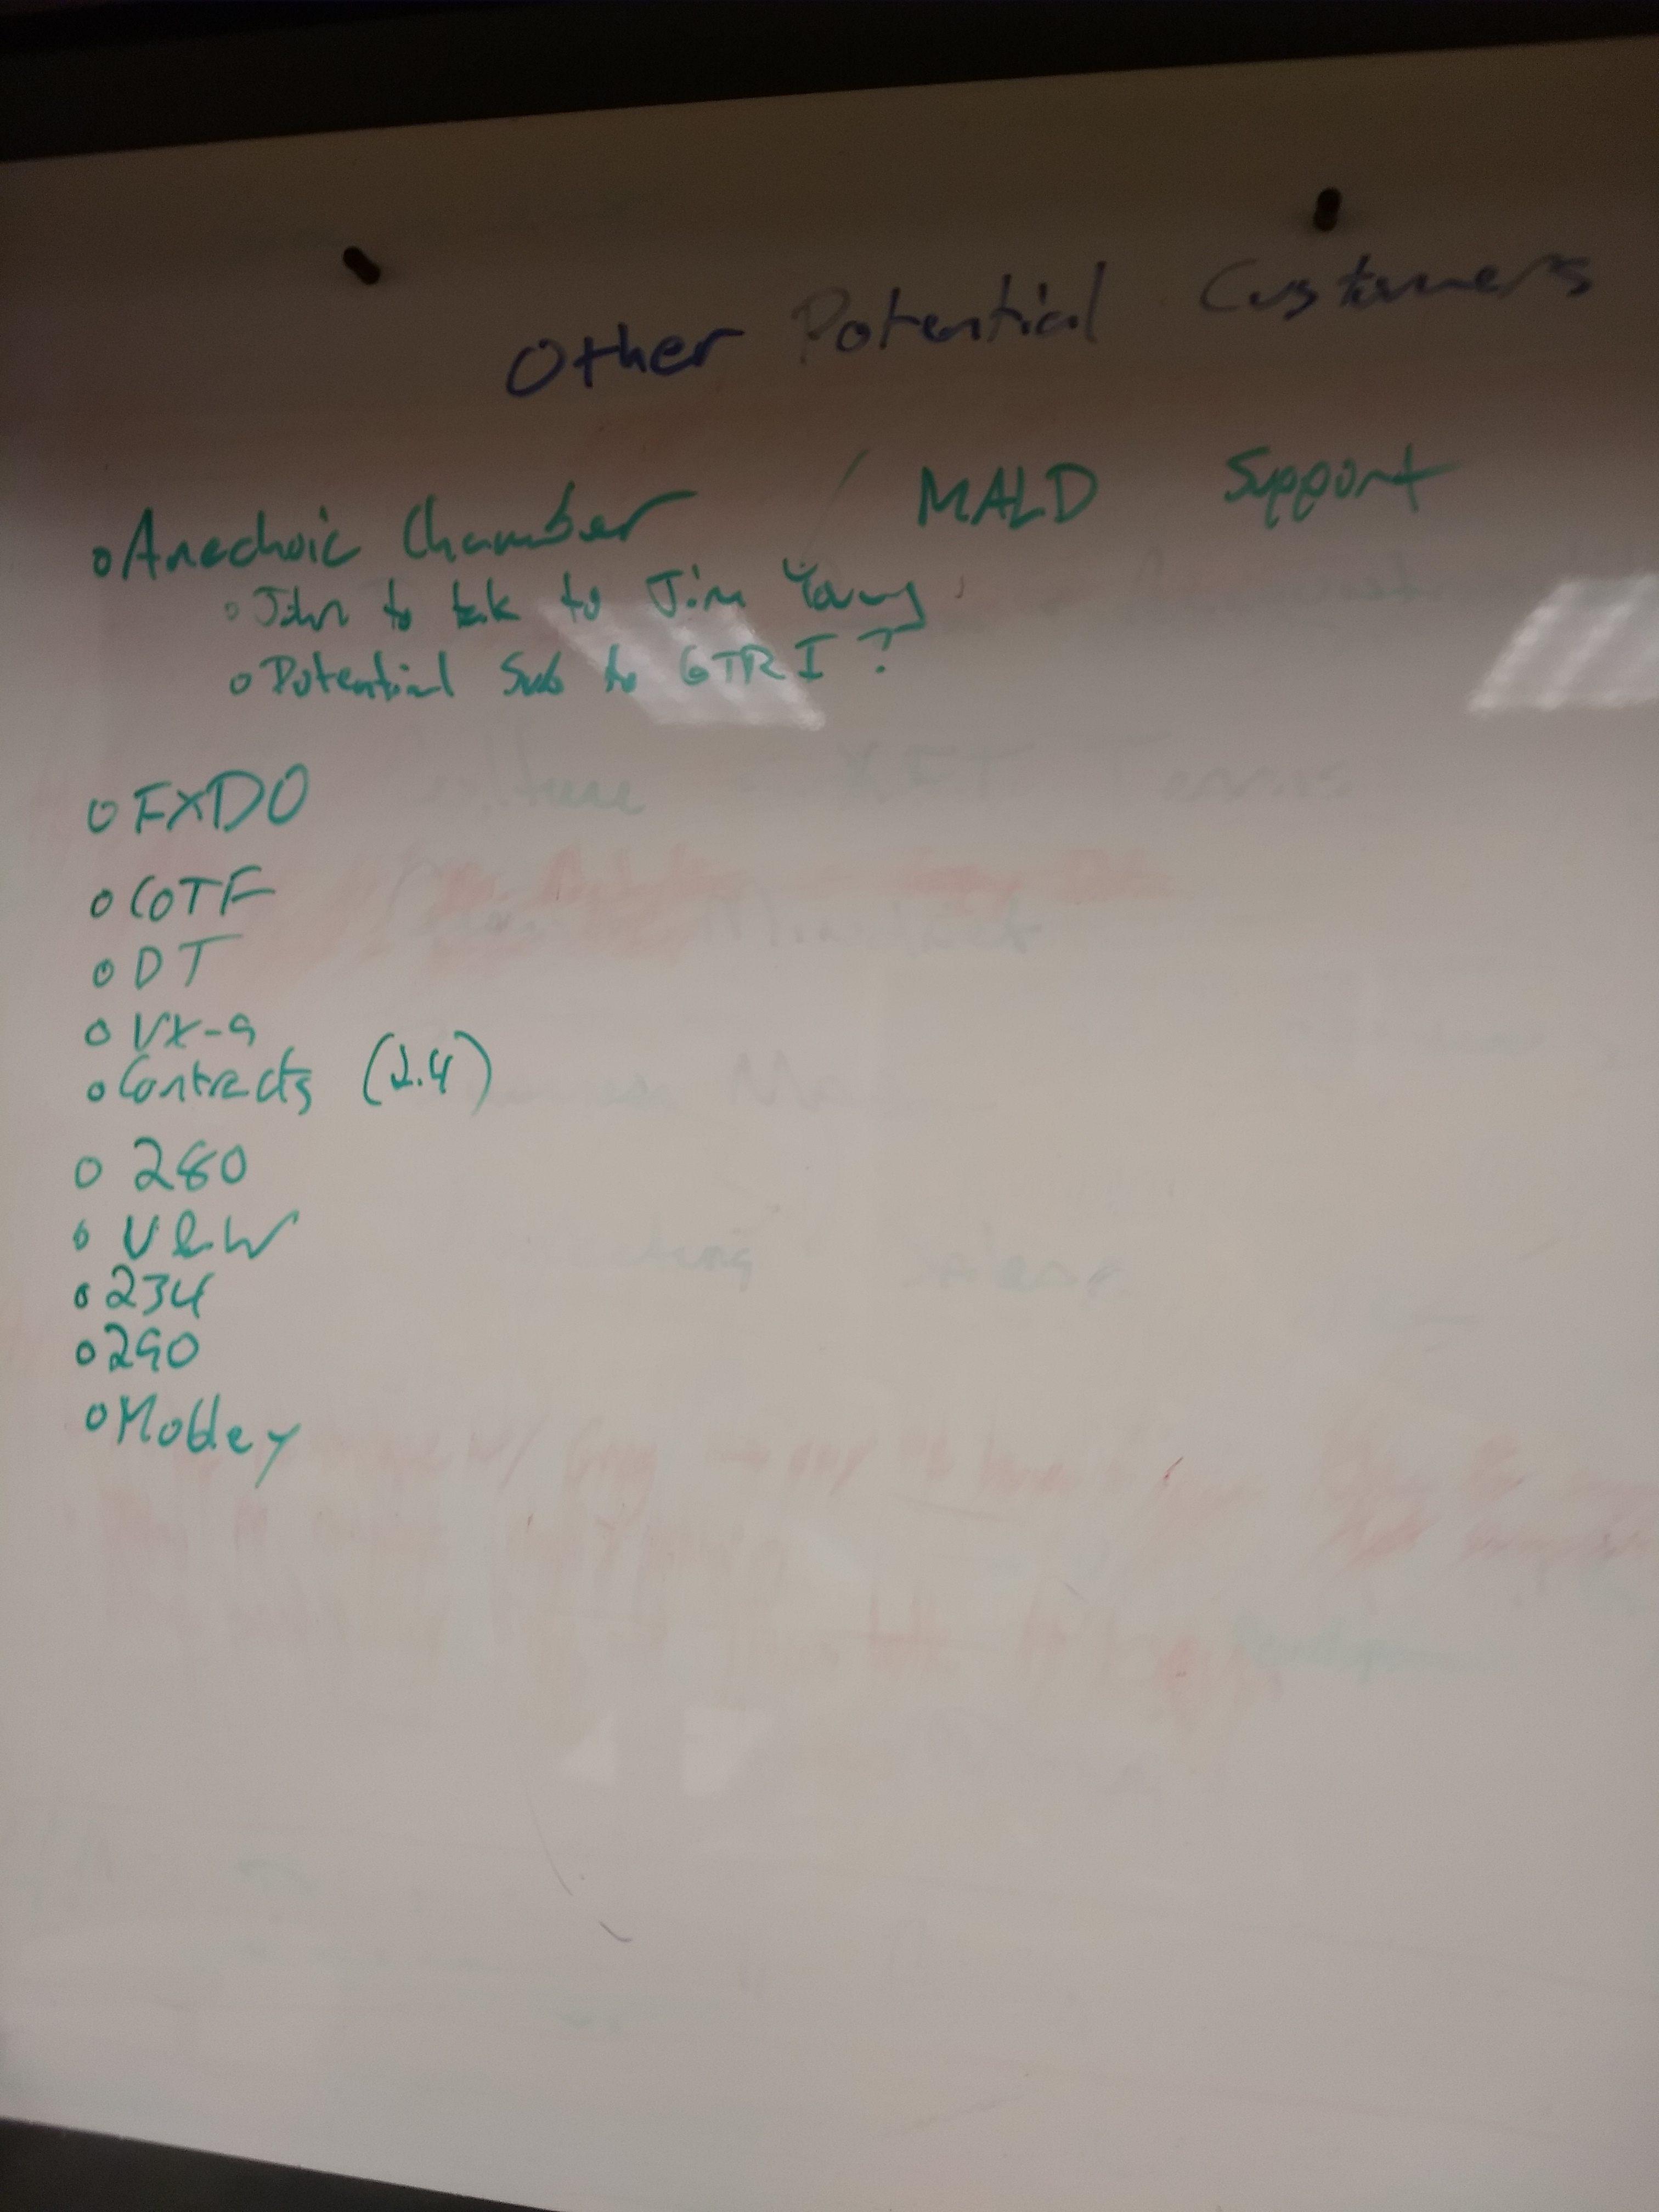 Other Potential Customers
o Anechoic Chamber / MALD Support
o John to talk to Jim Young
o Potential Sub to GTRI?
o FXDO
o COTF
o DT
o VX-9
o Contracts (2.4)
o 280
o V&W
o 234
o 290
o Mobley